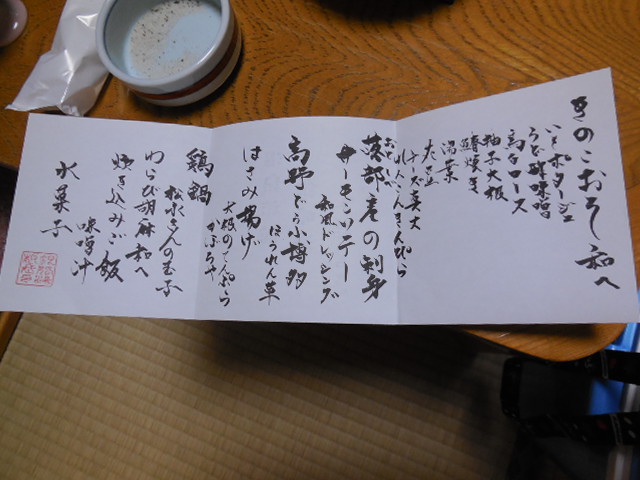 きのこおろし和へ
いもポタージュ
うど酢味噌
鴨ロース
柚子大根
鰆焼き
湯葉
たこ
チーズ
れんこんきんぴら
落部産の刺身
おとしべ
サーモンソテー
和風ドレッシング
高野どうふ小博多
ほうれん草
はさみ揚げ
大根のてんぷら
かぼちゃ
鶏鍋
松永さんの玉子
わらび胡麻和へ
炊き込みご飯
味噌汁
水菓子